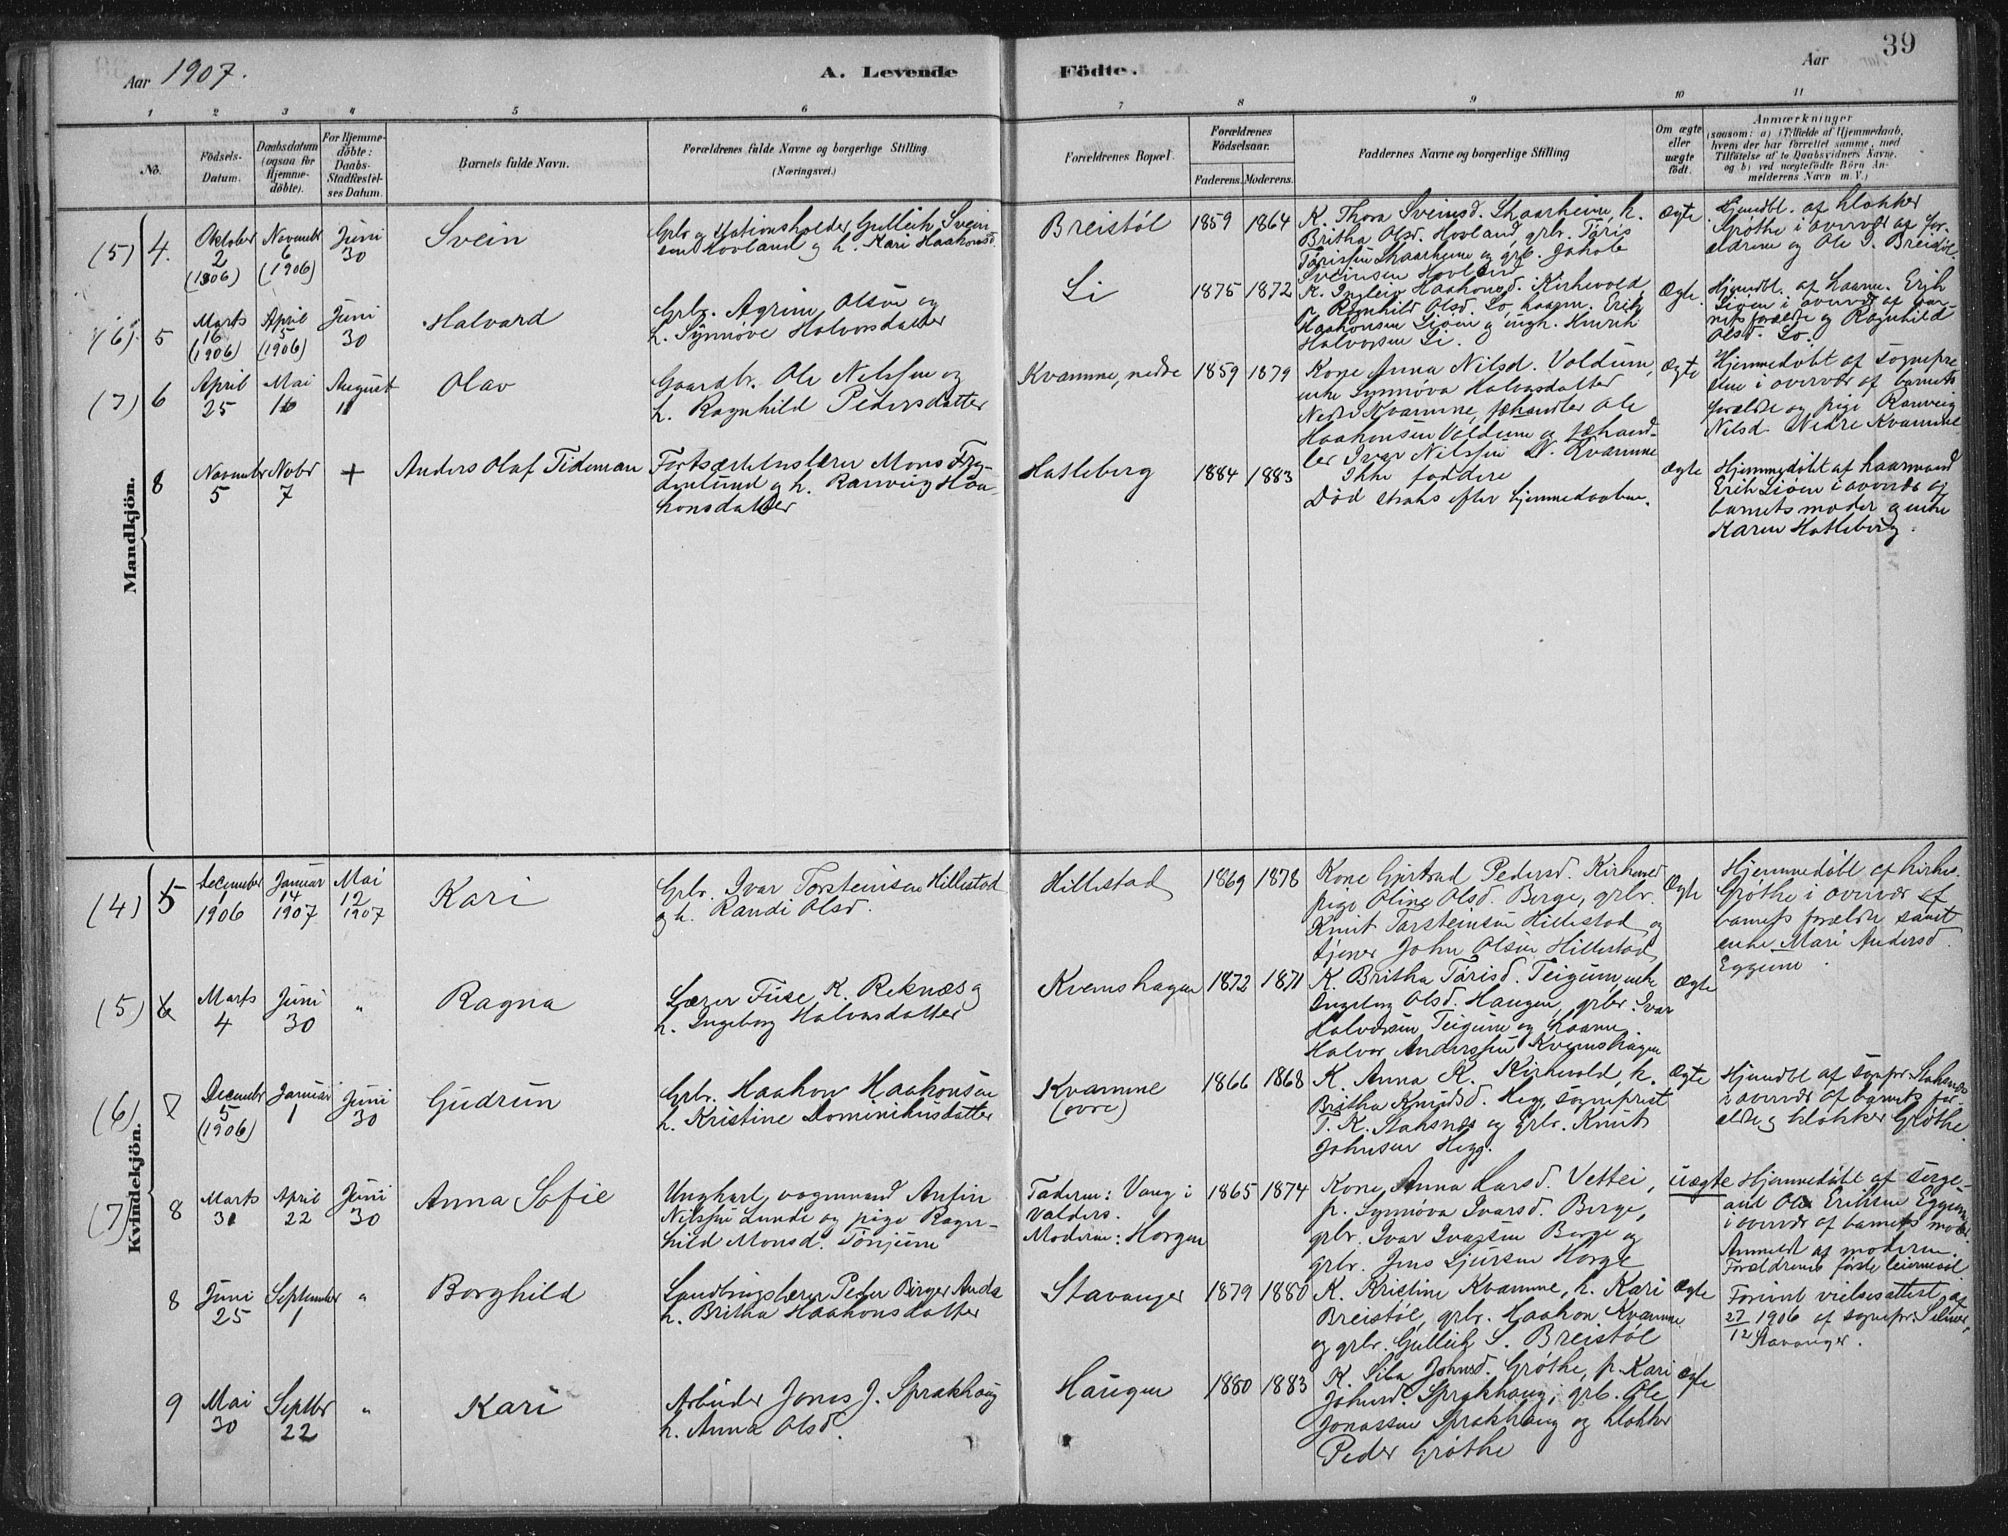 Aar 1907.
A. Levende Födte.
Aar
39
1 2 3 4 5 6 7 8 9 10 11
No.
Födsels-Datum.
Daabsdatum (ogsaa for Hjemme-döbte).
For Hjemme-döbte: Daabs-Stadfæstel-ses Datum.
Barnets fulde Navn.
Forældrenes fulde Navne og borgerlige Stilling
(Næringsvei.)
Forældrenes Bopæl.
Forældrenes Födselsaar.
Faderens. Moderens.
Faddernes Navne og borgerlige Stilling
Om ægte eller uægte födt.
Anmærkninger
(saasom: a) i Tilfælde af Hjemmedaab,
hvem der har forrettet samme, med
Tilföielse af to Daabsvidners Navne.
og b) ved uægtefödte Börn An-
melderens Navn m. V.)
Mandkjön.
(5) 4. Oktober 2 (1906) November 6 (1906) Juni 30
Svein
Grbr og stationsholder Gulleik Svein
sen Hovland og h. Kari Haakonsd.
Breistöl 1859 1864
K. Thora Sveinsd. Skaarheim, h.
Britha Olsd. Hovland, grbr. Töris
Törissen Skaarheim og grb. Jakob
Sveinsen Hovland
Ægte
Hjemdbt. af klokker
Gröthe i overvær af for-
ældrene og Ole G. Breistöl.
(6) 5 Marts 16 (1906) April 5 (1906) Juni 30
Halvard
Grbr. Agrim Olsen og
h. Synnöve Halvorsdatter
Li 1875 1872
K. Ingleiv Haakonsd. Kirkevold,
p. Ragnhild Olsd. Lo, haarm. Erik
Haakonsen Liöen og ungk. Henrik
Halvorsen Li.
Ægte.
Hjemdbt. af haarm. Erik
Liöen i overvær af bar-
nets forældre og Ragnhild
Olsd. Lo.
(7) 6 April 25 Mai 16 August 11
Olav
Gaardbr. Ole Nilssen og
h. Ragnhild Pedersdatter
Kvamme, nedre 1859 1879
Kone Anna Nilsd. Voldum,
enke Synnöva Halvorsdatter
Nedre Kvamme, fæhandler Ole
Haakonsen Voldum og fæhand-
ler Ivar Nilssen N. Kvamme
Ægte
Hjemmedöbt af sognepre
sten i overvær af barnets
forældre og pige Ranveig
Nilsd. Nedre Kvamme
8 November 5 Novbr 7 +
Anders Olaf Tideman
Fortsættelseslærer Mons Fry-
denlund og h. Ranveig Haa-
konsdatter
Hatleberg 1884 1883
Ikke faddere
Död straks efter hjemmedaaben.
ægte
Hjemmedöbt af haarmand
Erik Liöen i overvær af
barnets moder og enke
Karen Hatleberg.
Kvindekjön.
(4) 5 December 1 1906 Januar 14 1907 Mai 12 1907
Kari
Grbr. Ivar Torsteinsen Hillestad
og h. Randi Olsd.
Hillestad 1869 1878
Kone Gjertrud Pedersd. Kirkene
pige Oline Olsd. Berge, grbr.
Knut Torsteinsen Hillestad og
tjener John Olsen Hillestad
Ægte
Hjemmedöbt af kirkes.
Gröthe i overvær af
barnets forældre samt
enke Mari Andersd.
Eggum.
(5) 6 Marts 4 Juni 30 "
Ragna
Lærer Fuse K. Reknæs og
h. Ingeborg Halvorsdatter
Kvemshagen 1872 1871
K. Britha Törisd. Teigum, enke
Ingeborg Olsd. Haugen, grbr. Ivar
Halvorsen Teigum og haarm.
Halvor Anderssen Kvemshagen
Ægte
(6) 7 December 5 (1906) Januar 1 Juni 30
Gudrun
Grbr. Haakon Haakonsen
h. Kristine Dominikusdatter
Kvamme (övre) 1866 1868
K. Anna K. Kirkevold, h.
Britha Knudsd. Hegg, sogneprest
T. K. Stahsnæs og Grbr. Knut
Johnsen Hegg.
Ægte
Hjemdbt af sognepr. Stahsnæs
i overvær af barnets for-
ældre og klokker Gröthe.
(7) 8 Marts 31 April 22 Juni 30
Anna Sofie
Ungkarl, vognmand Anfin
Nilssen Lunde og pige Ragn-
hild Monsd. Tönjum
Faderen: Vang i
Valders.
Moderen: Horgen
1865 1874
Kone Anna Larsd. Vettei,
p. Synnöva Ivarsd. Berge,
grbr. Ivar Ivarsen Berge og
grbr. Jens Sjursen Horge
uægte
Hjemmedöbt af
Ole Eriksen Eggum
i overvær af barnets moder.
Anmeldt af moderen.
Forældrenes förste leiermaal.
8 Juni 25 September 1 "
Borghild
Landbrugslærer Peder Birger Anda
h. Britha Haakonsdatter
Stavanger 1879 1880
K. Kristine Kvamme, h. Kari
Breistöl, grbr. Haakon Kvamme
og grbr. Gulleik S. Breistöl
Ægte
Forevist vielsesattest af
27/12 1906 af sognepr. Selmer,
Stavanger.
9 Mai 30 Septbr 22 "
Kari
Arbeider Jones J. Sprakhaug
h. Anna Olsd.
Haugen 1880 1883
K. Siba Johnsd. Gröthe, p. Kari
Johnsd. Sprakhaug, grb. Ole
Jonassen Sprakhaug og klokker
Peder Gröthe
Ægte